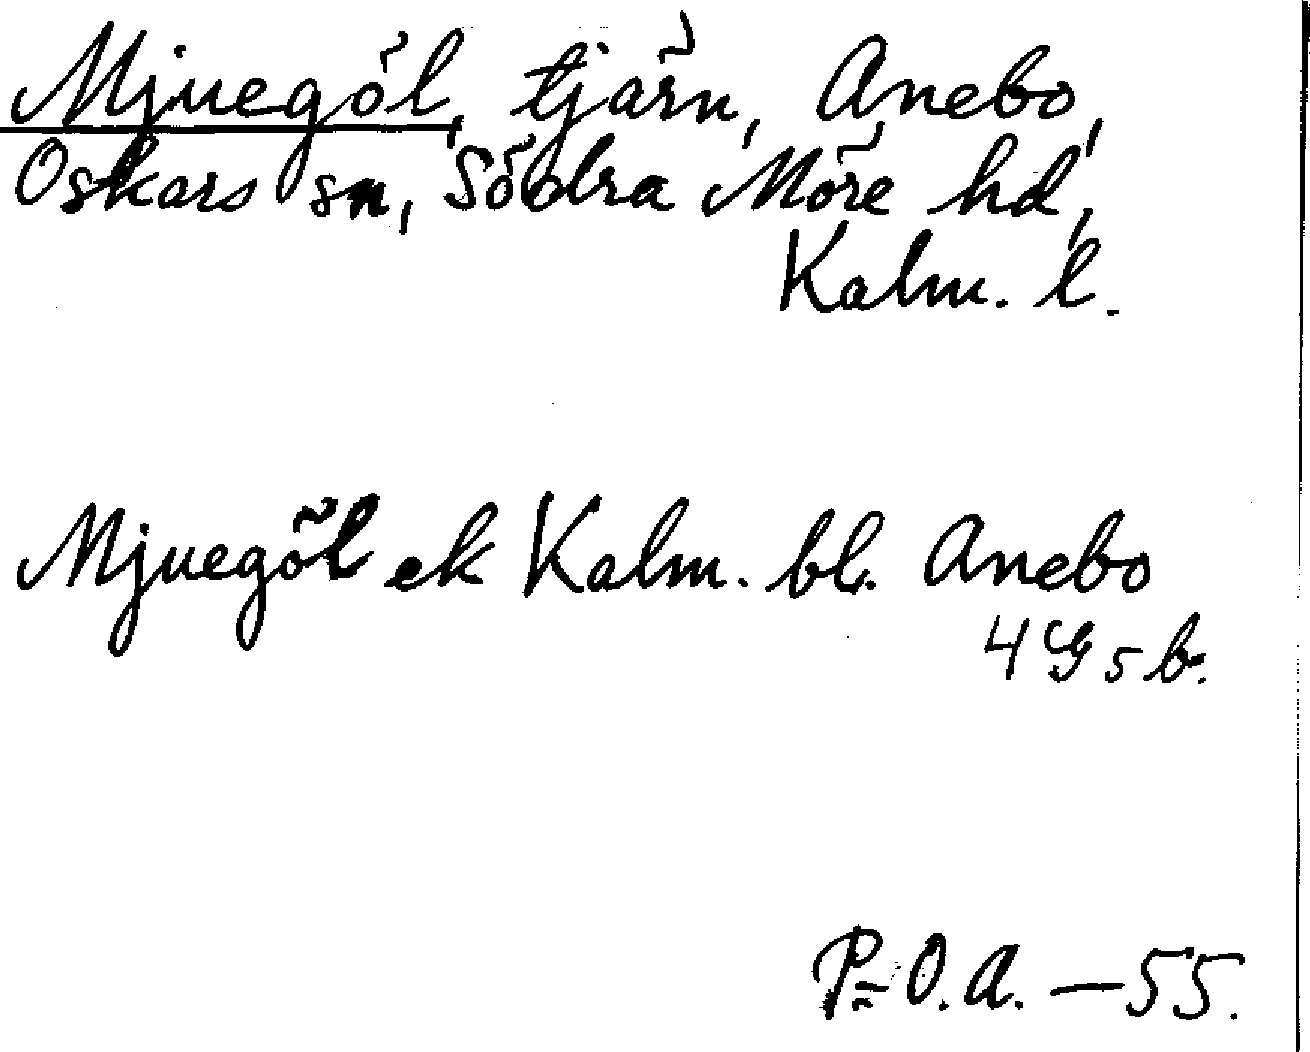 Mjuegöl, tjärn, Anebo,
Oskars sn, Södra Möre hd,
Kalm. l.
Mjuegöl ek Kalm. bl. Anebo
4 G 5 b.
P=O.A. — 55.